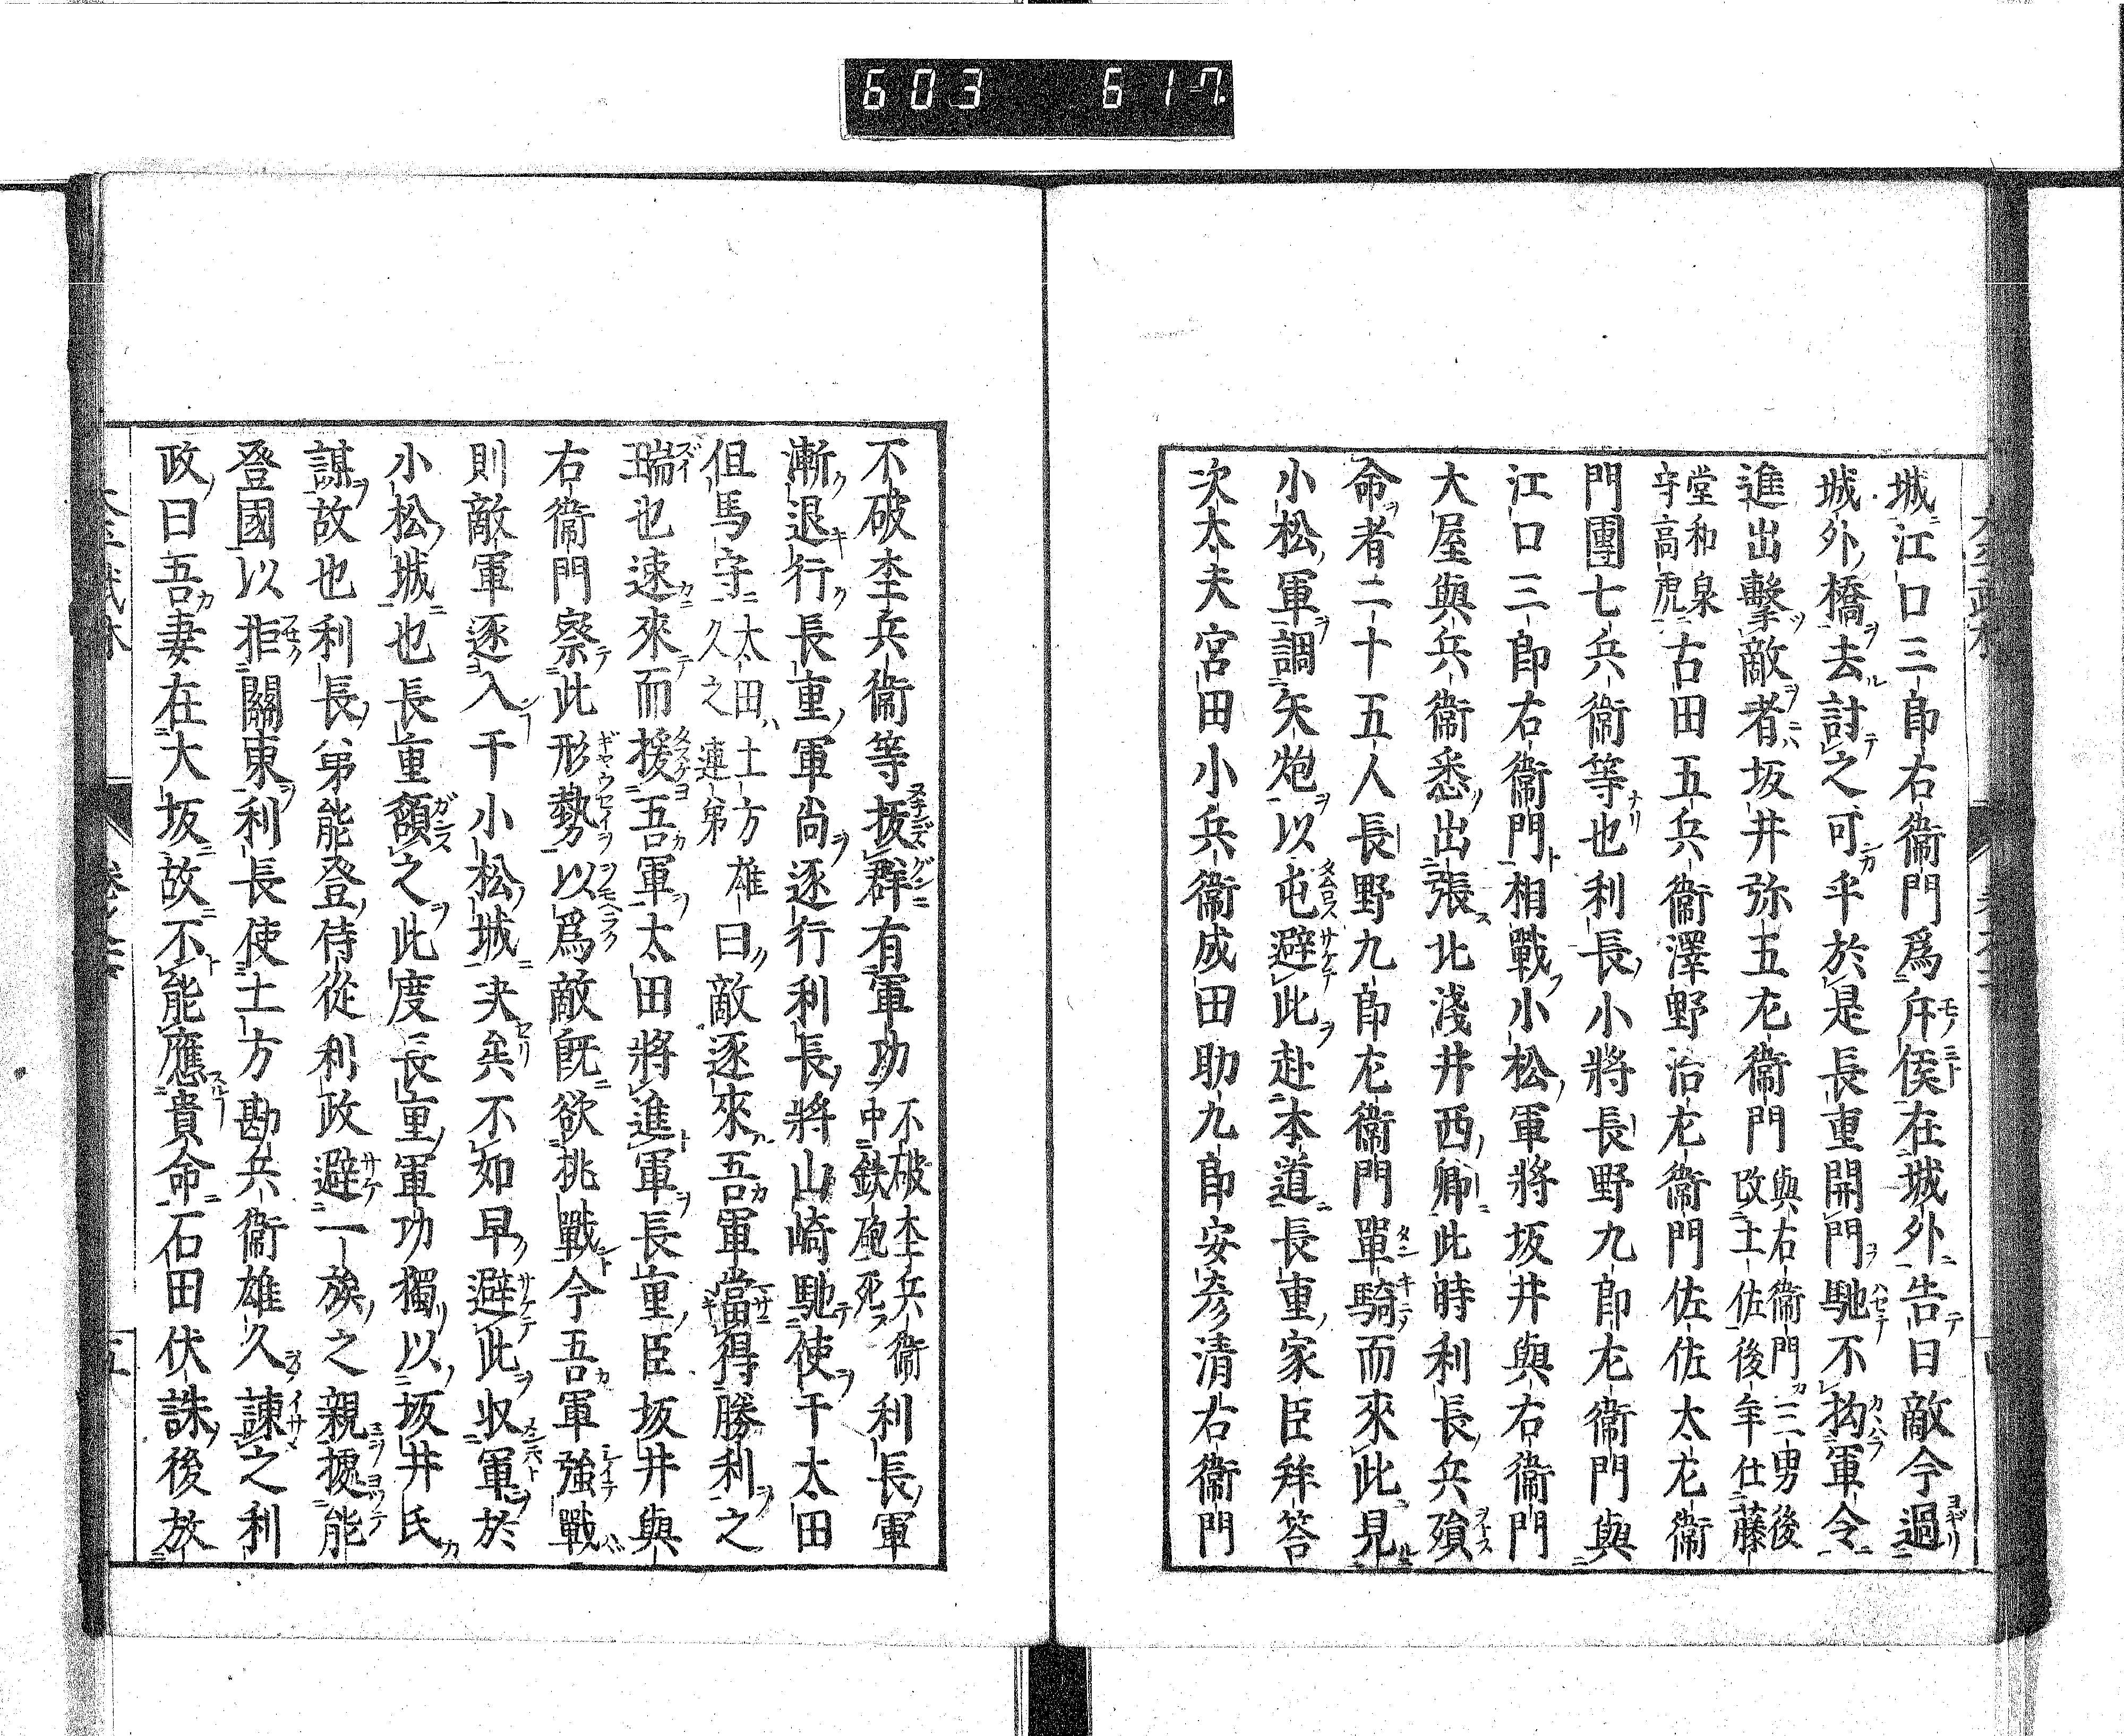 603 617
城江口三郎右衞門爲斥候在城外告曰敵今過
城外橋去討之可乎於是長重開門馳不拘軍令
進出擊敵者坂井弥五左衞門與右衞門三男後改土佐後年仕藤
堂和泉守高虎古田五兵衞澤野治左衞門佐佐太左衞
門團七兵衞等也利長小將長野九郎左衞門與
江口三郎右衞門相戰小松軍將坂井與右衞門
大屋與兵衞悉出張北淺井西鄉此時利長兵殞
命者二十五人長野九郎左衞門單騎而來此見
小松軍調矢炮以屯避此赴本道長重家臣拜答
次太夫宮田小兵衞成田助九郎安彦清右衞門
不破杢兵衞等拔群有軍功不破杢兵衞中鉄砲死利長軍
漸退行長重軍尚逐行利長將山崎馳使于太田
但馬守太田ハ土方久之連弟雄曰敵逐來吾軍當得勝利之
瑞也速來而援吾軍太田將進軍長重臣坂井與
右衞門察此形勢以爲敵既欲挑戰今吾軍強戰
則敵軍逐入于小松城决矣不如早避此収軍於
小松城也長重頷之此度長重軍功獨以坂井氏
謀故也利長弟能登侍從利政避一族之親擾能
登國以拒關東利長使土方勘兵衞雄久諫之利
政曰吾妻在大坂故不能應貴命石田伏誅後放